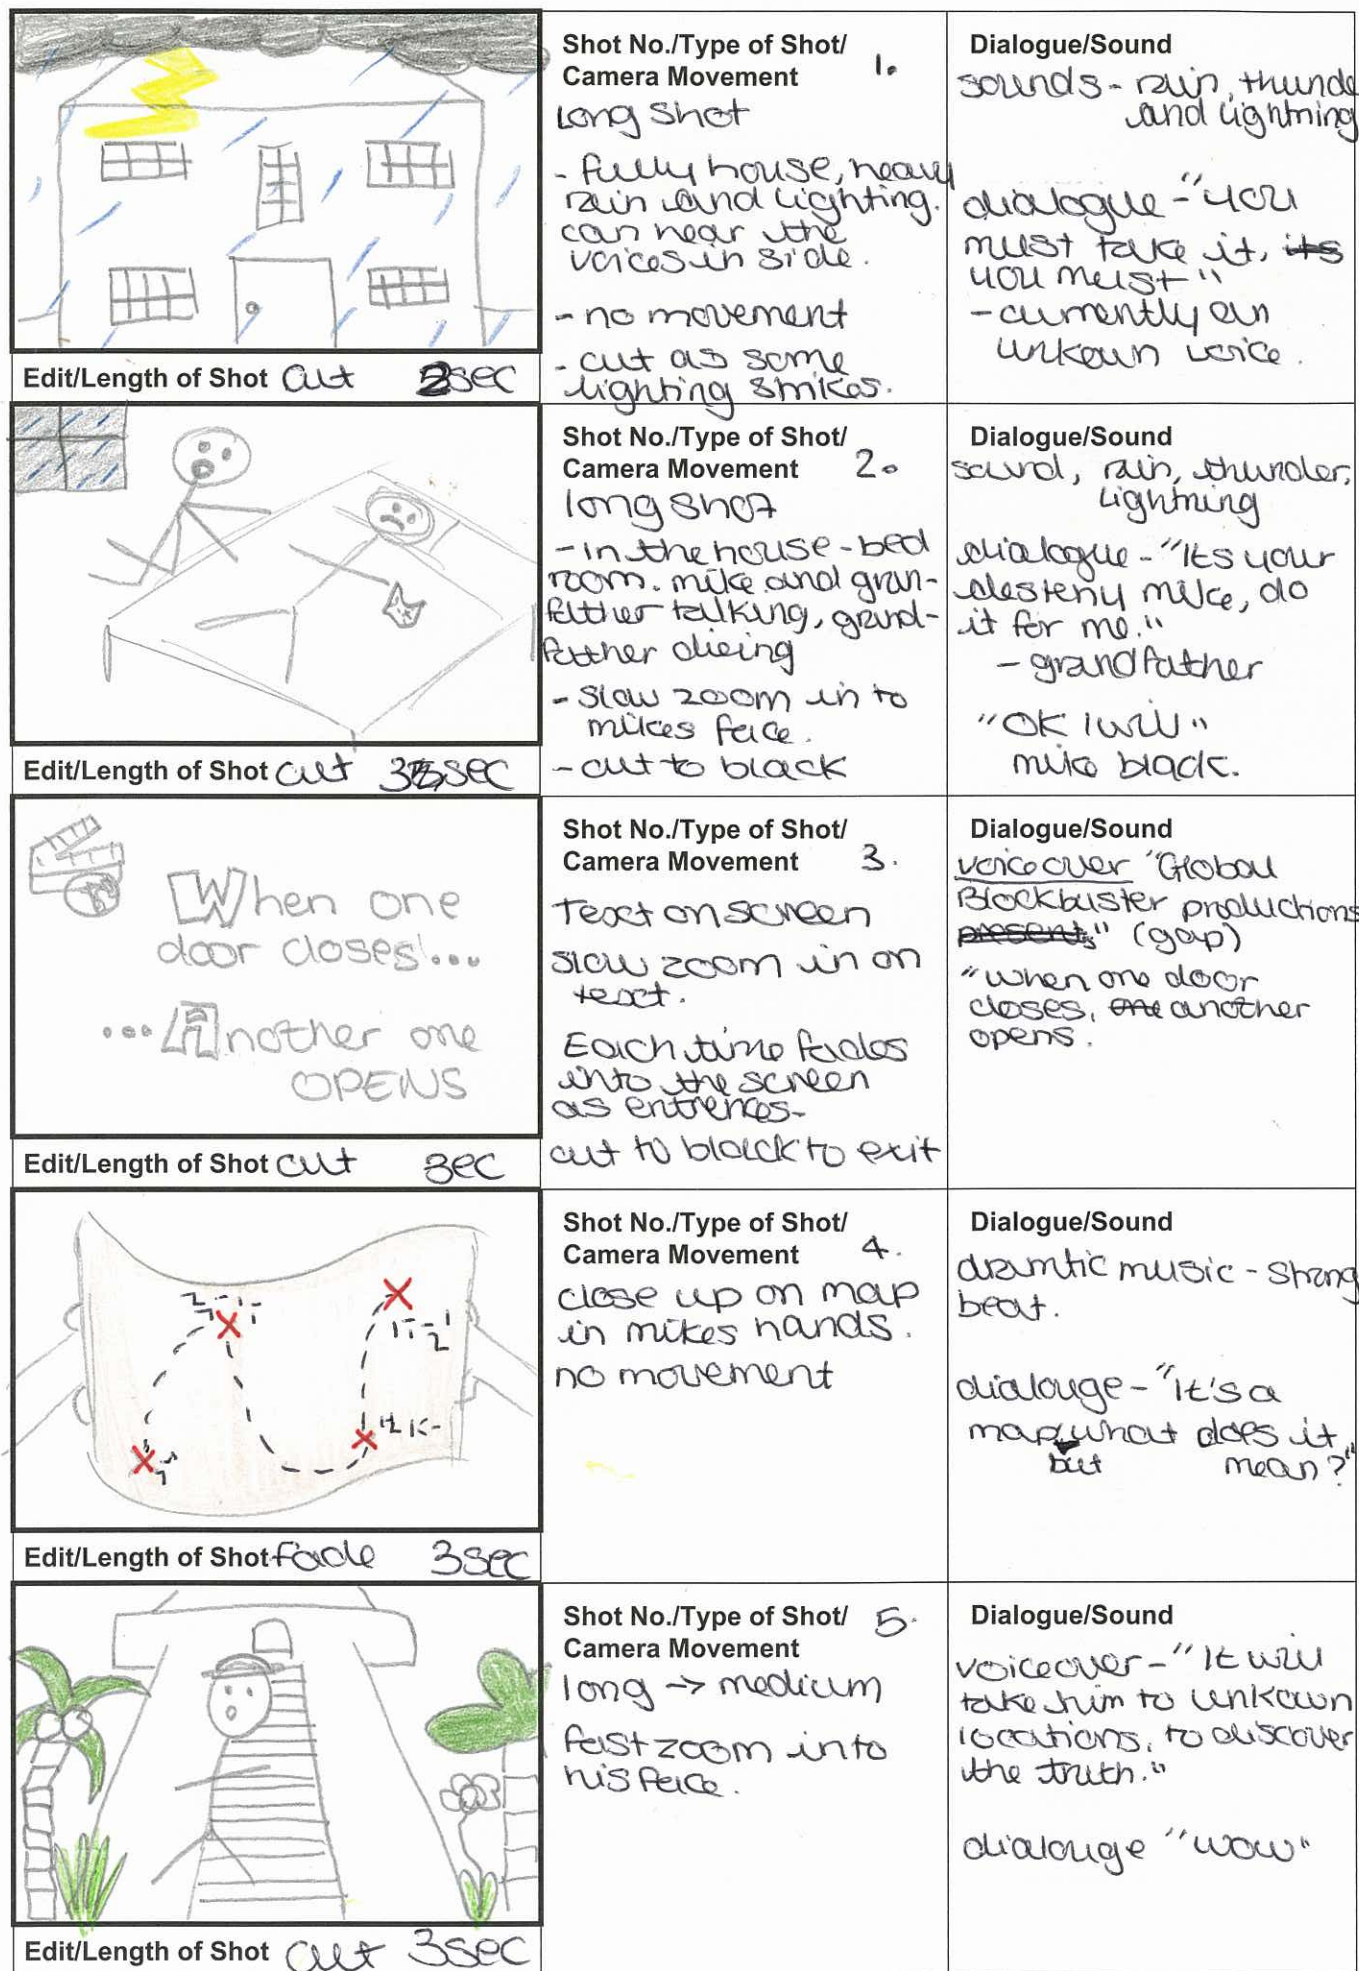 Shot No./Type of Shot/
Camera Movement 1.
Long shot
- fully house, heavy
rain and lighting.
can hear the
voices in side.
- no movement
- cut as some
lighting strikes.
Dialogue/Sound
sounds - rain, thunde
and lightning
dialogue - "you
must take it, its
you must"
- currently an
unkown voice.
Edit/Length of Shot cut 2sec
Shot No./Type of Shot/
Camera Movement 2.
long shot
- in the house - bed
room. mike and gran-
father talking, grand-
father dieing
- slow zoom in to
mikes face.
- cut to black
Dialogue/Sound
sound, rain, thunder,
lightning
dialogue - "Its your
desteny mike, do
it for me."
- grandfather
"OK I will"
mike black.
Edit/Length of Shot cut 3sec
When one
door closes...
...Another one
OPENS
Shot No./Type of Shot/
Camera Movement 3.
Text on screen
slow zoom in on
text.
Each time fades
into the screen
as entrences-
cut to black to exit
Dialogue/Sound
voiceover "Global
Blockbuster productions
presents" (gap)
"when one door
closes, one another
opens.
Edit/Length of Shot cut 3ec
Shot No./Type of Shot/
Camera Movement 4.
close up on map
in mikes hands.
no movement
Dialogue/Sound
dramtic music - strong
beat.
dialouge - "it's a
map, but what does it
mean?"
Edit/Length of Shot fade 3sec
Shot No./Type of Shot/ 5.
Camera Movement
long -> medium
fast zoom into
his face.
Dialogue/Sound
voiceover - "It will
take him to unkown
locations, to discover
the truth."
dialouge "wow"
Edit/Length of Shot cut 3sec